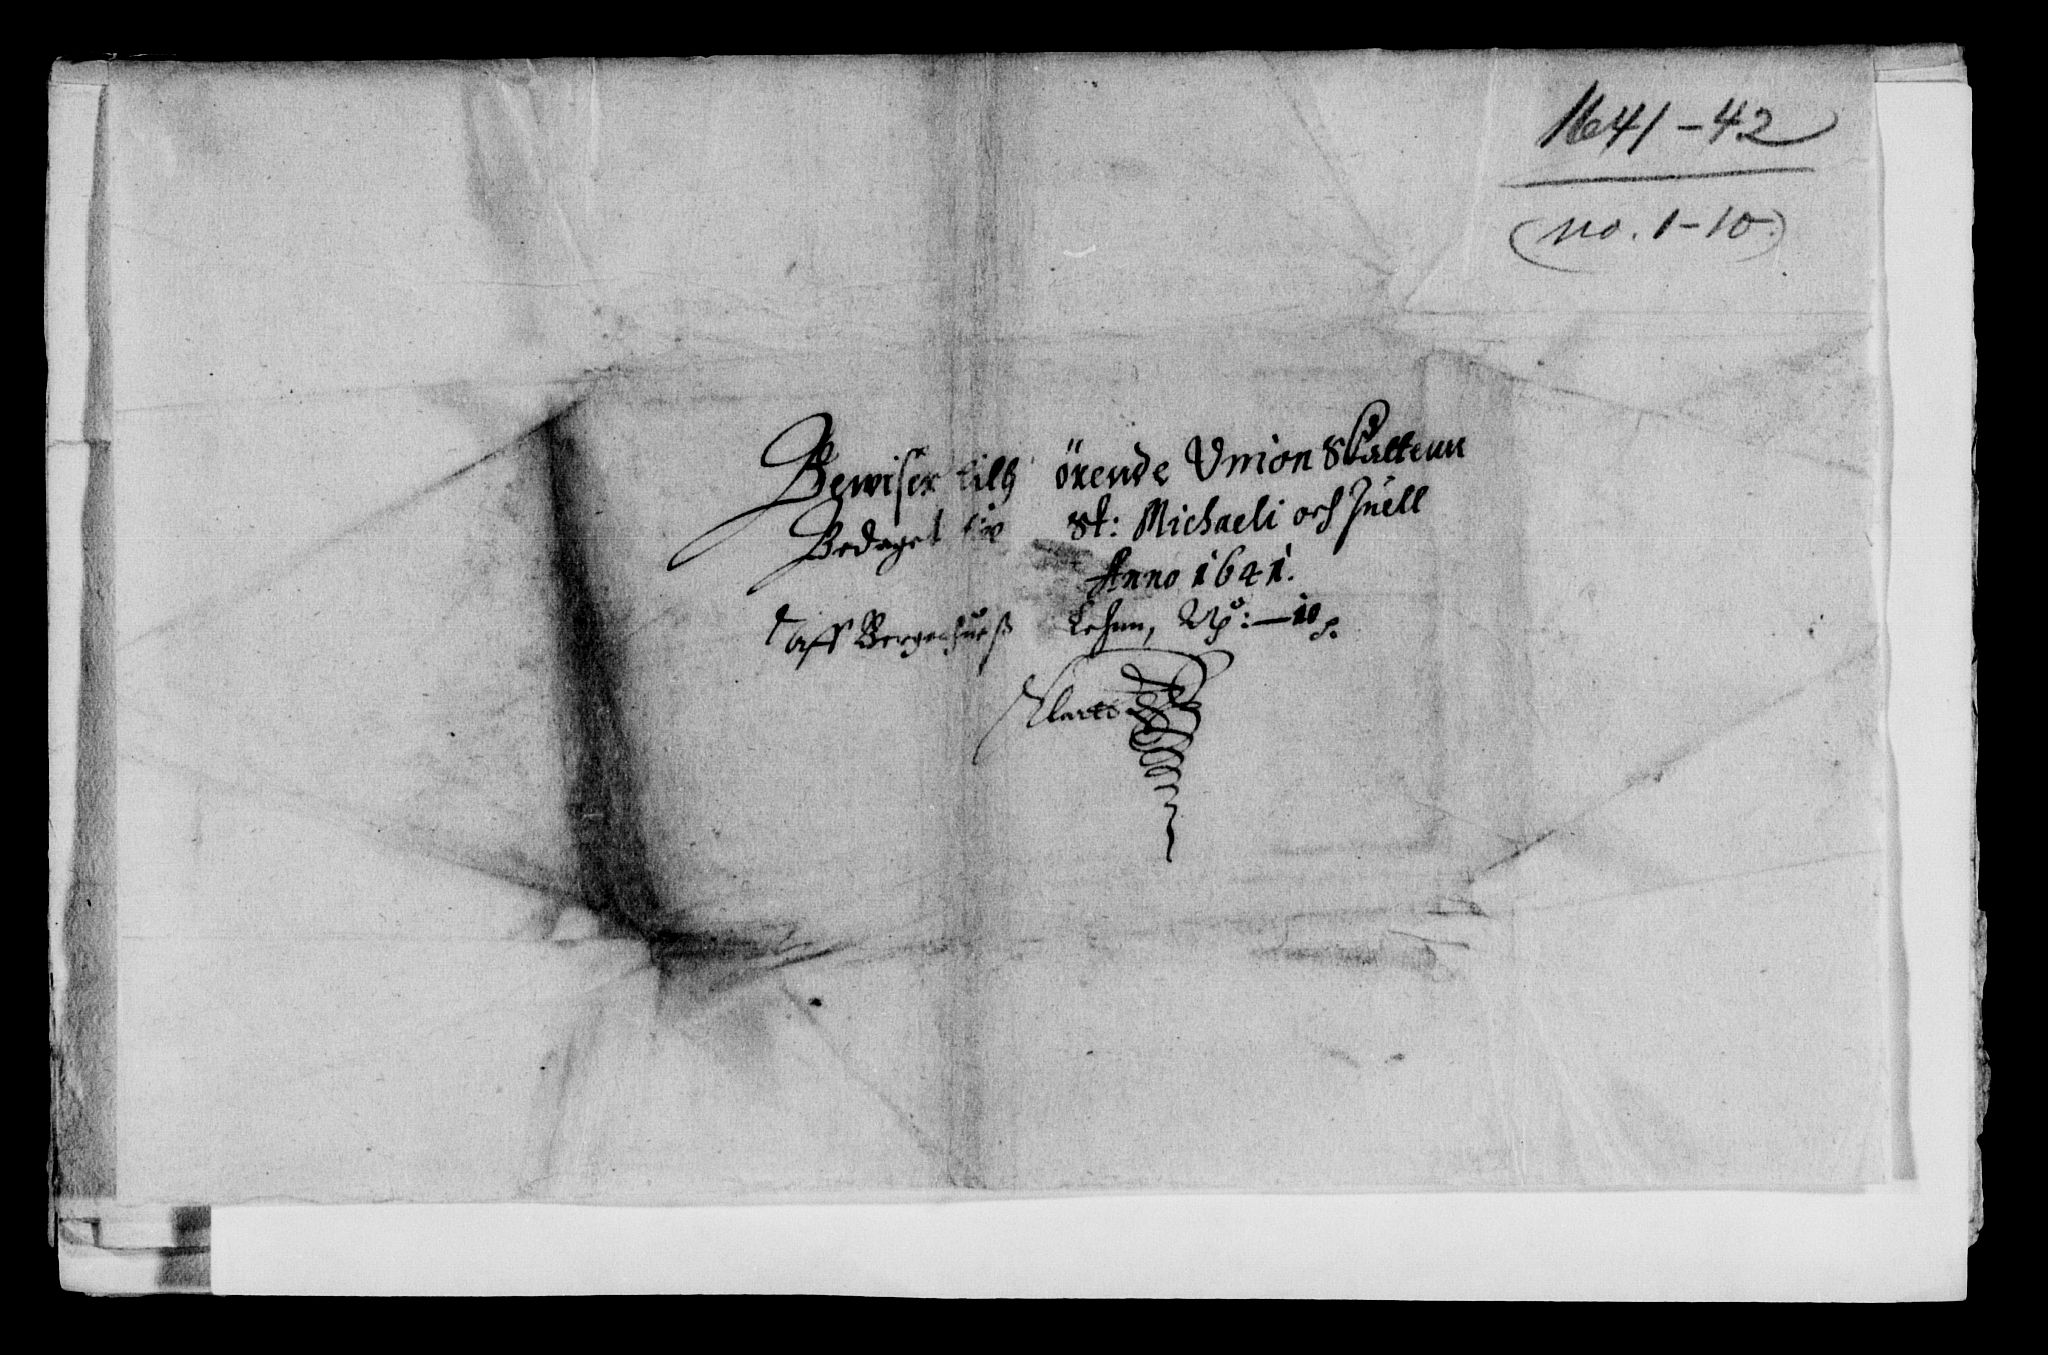 1641-42
(no. 1-10.)
Bewiser tilhørende Union Skattenn
Bedaget till St: Michaeli och Juell
Anno 1641.
aff Bergenhuus Lehnn, No: — 10